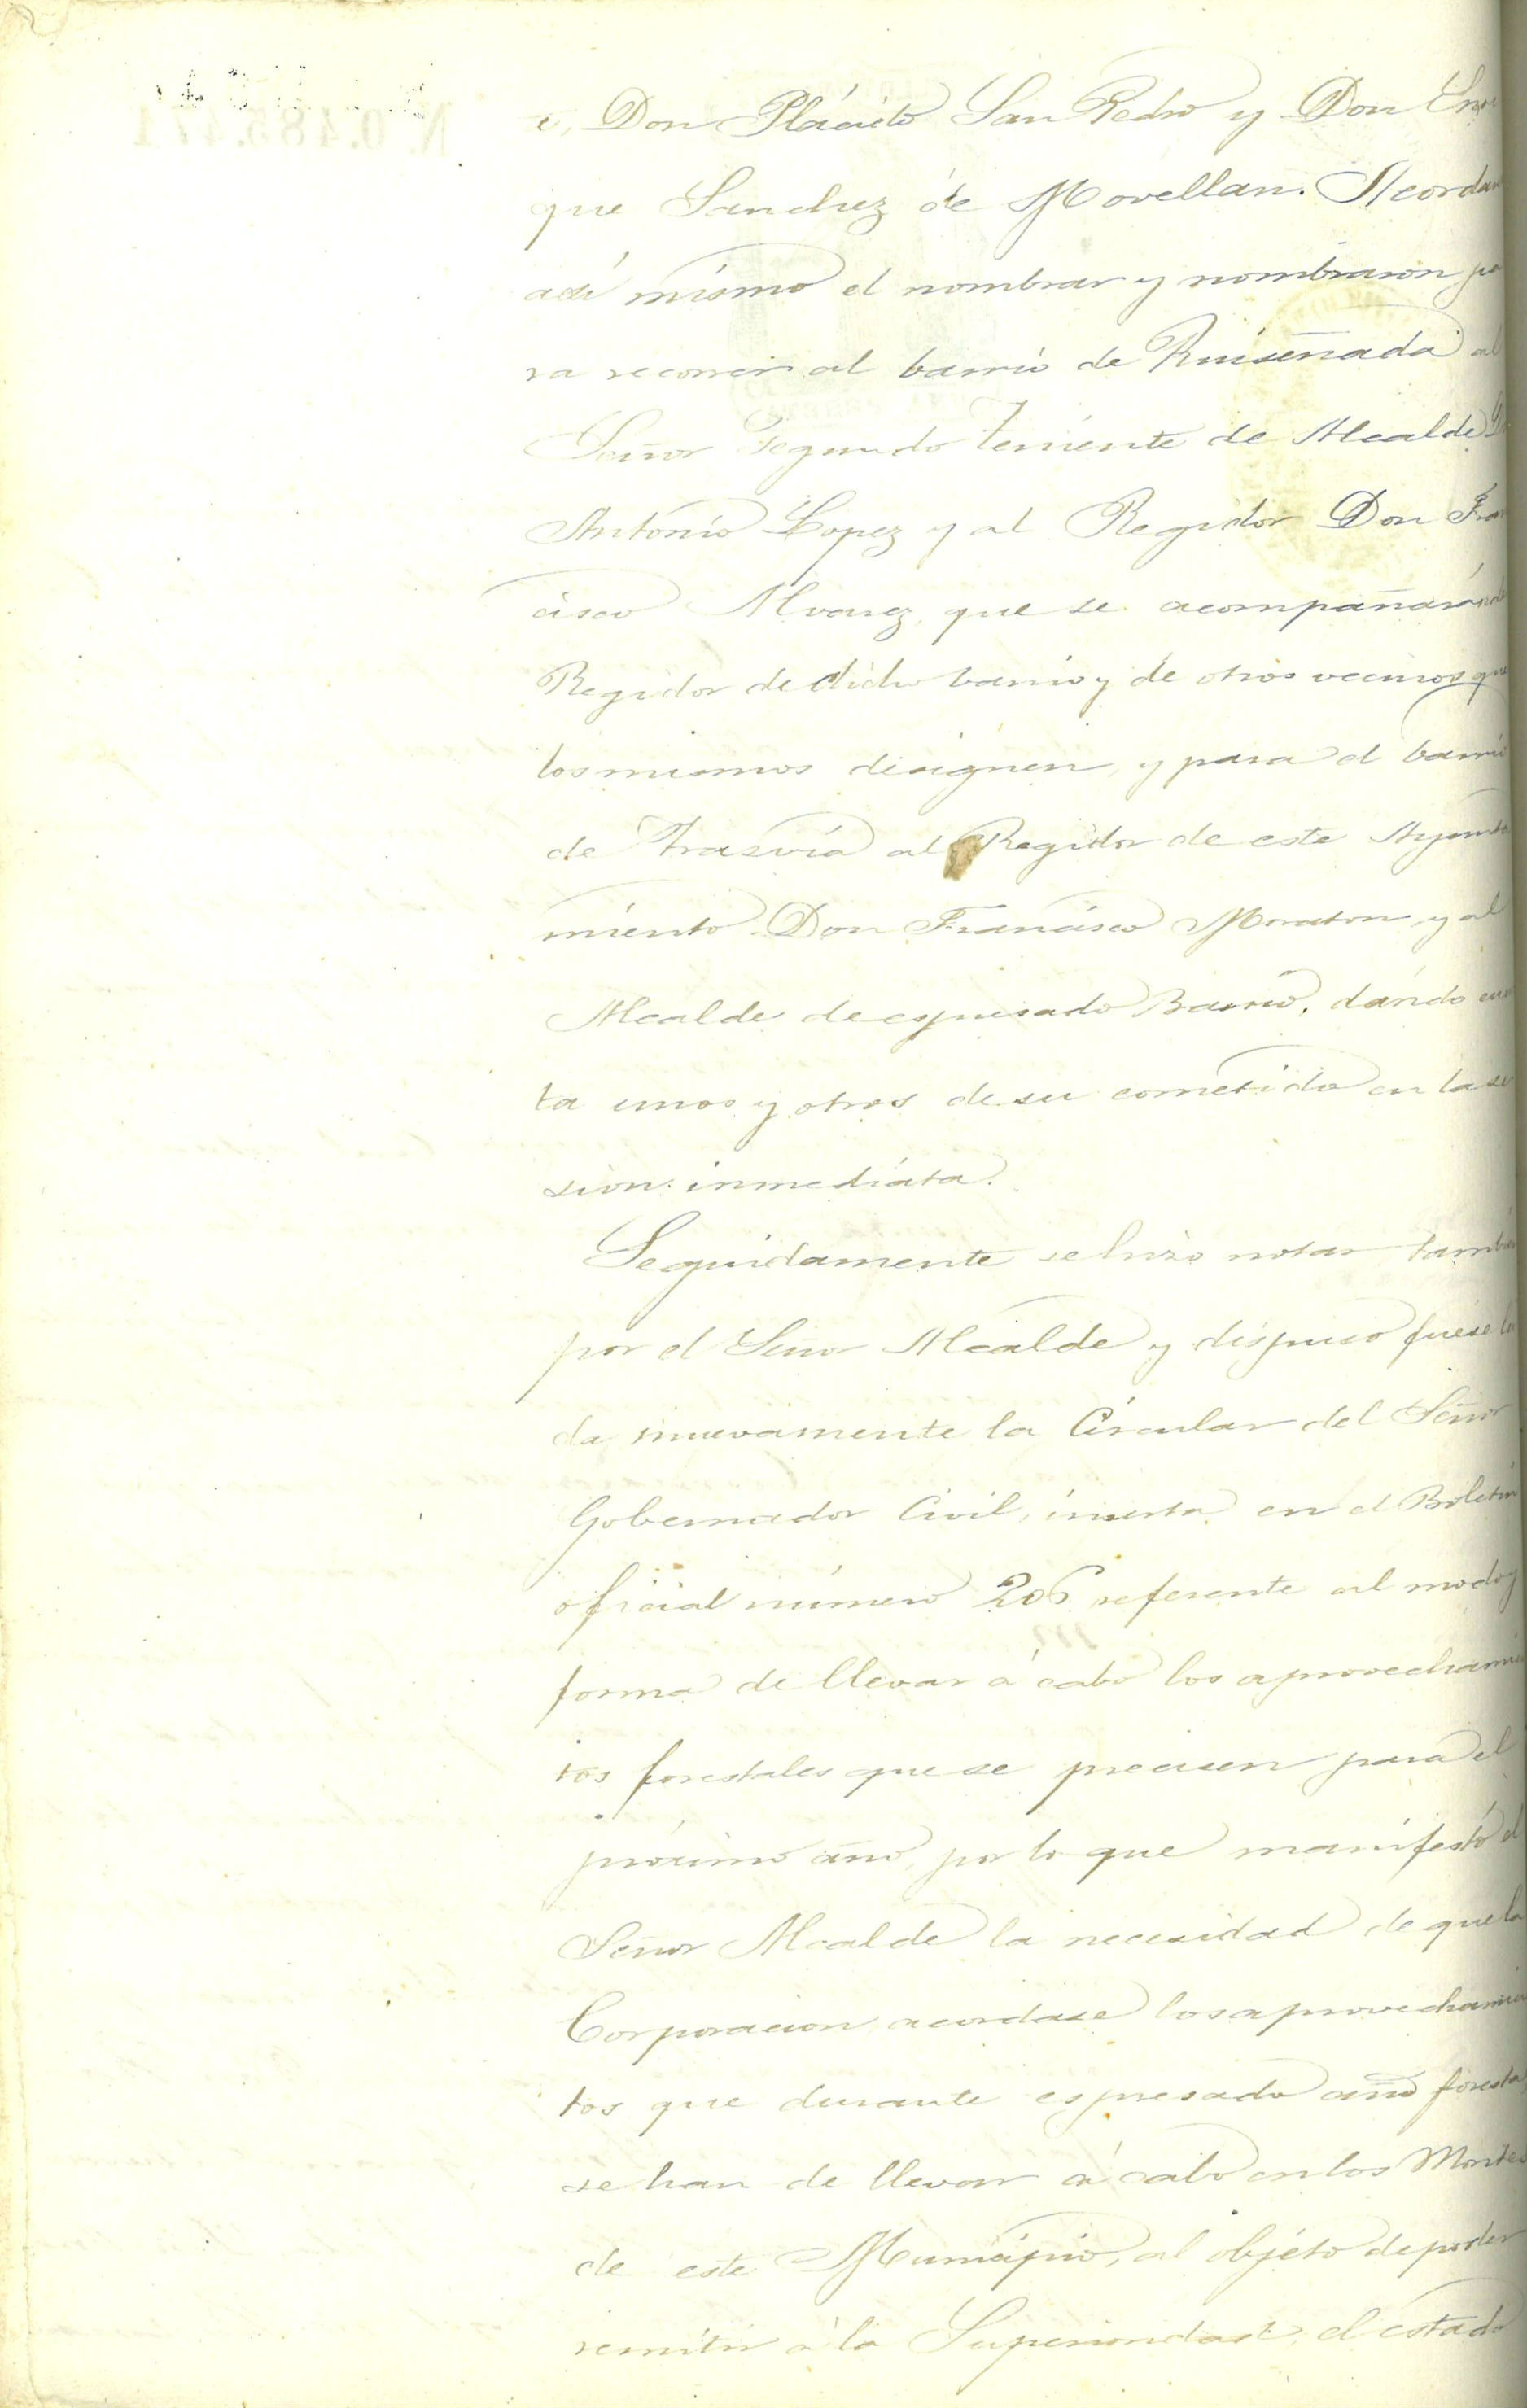 é, Don Plácido San Pedro y Don Enri
que Sanchez de Movellan. Acordan
asi mismo el nombrar y nombraron pa
ra recorrer al barrio de Ruiseñada al
Señor Segundo Teniente de Alcalde D.
Antonio Lopez y al Regidor Don Fran
cisco Alvarez, que se acompañarán del
Regidor de dicho barrio y de otros vecinos que
los mismos designen, y para el barrio
de Trasvía al Regidor de este Ayunta
miento Don Francisco Moraton y al
Alcalde de espresado Barrio, dando cuen
ta unos y otros de su cometido en la se
sion inmediata.
Seguidamente se hizo notar tambien
por el Señor Alcalde y dispuso fuese lei
da nuevamente la Circular del Señor
Gobernador Civil, inserta en el Boletin
oficial número 206 referente al modo y
forma de llevar á cabo los aprovechamien
tos forestales que se precisen para el
próximo año, por lo que manifestó el
Señor Alcalde la necesidad de que la
Corporacion acordase los aprovechamien
tos que durante espresado año foresta
se han de llevar á cabo en los Montes
de este Municipio, al objéto de poder
remitir á la Superioridad el estado
N. 0.485.471